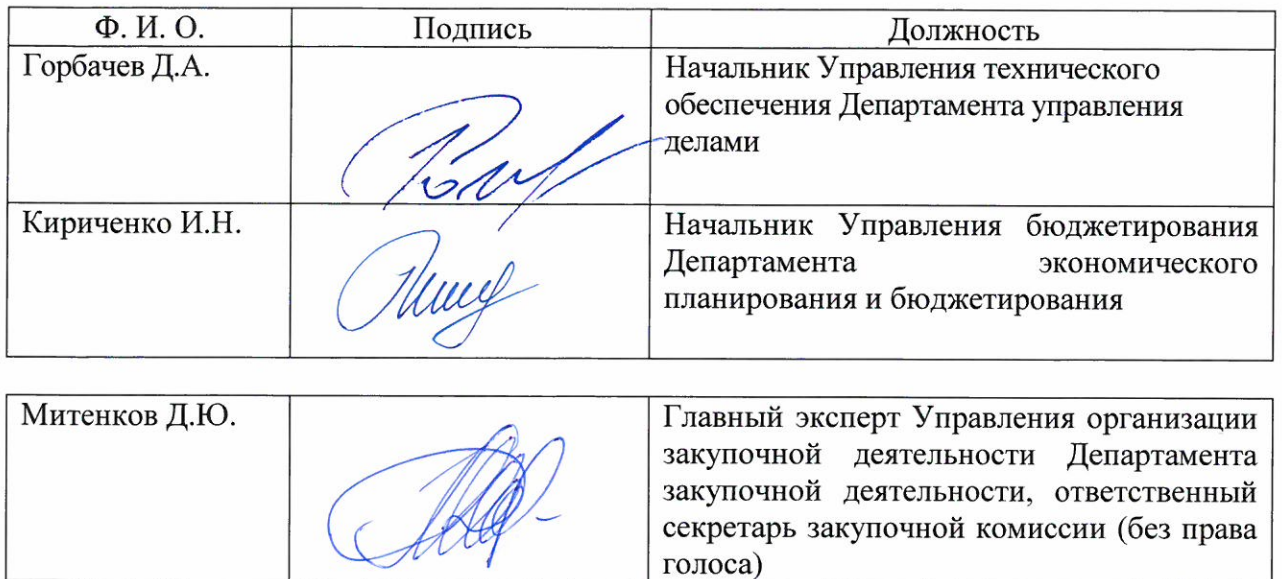 Ф. И. О. Подпись Должность
Горбачев Д.А. Начальник Управления технического
обеспечения Департамента управления
делами
Кириченко И.Н. Начальник Управления бюджетирования
Департамента экономического
планирования и бюджетирования
Митенков Д.Ю. Главный эксперт Управления организации
закупочной деятельности Департамента
закупочной деятельности, ответственный
секретарь закупочной комиссии (без права
голоса)